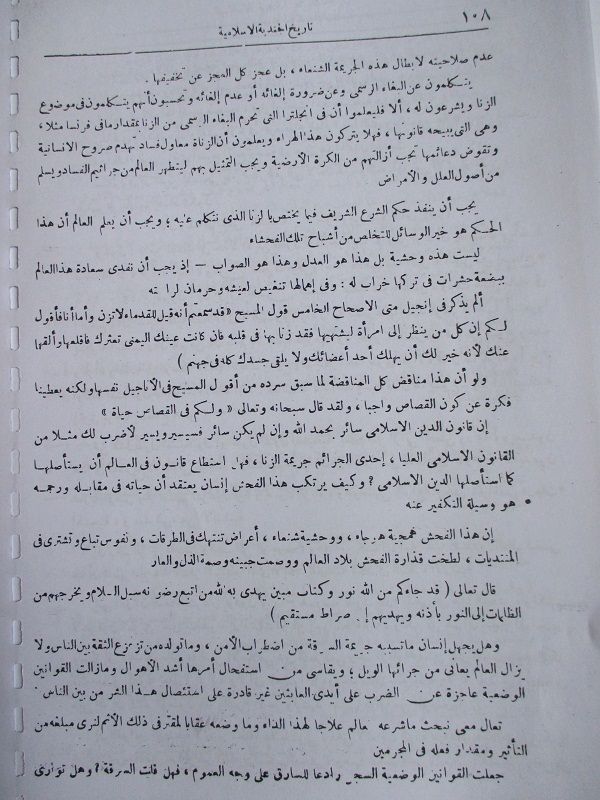 ١٠٨
تاريخ الجندية الاسلامية
عدم صلاحيته لابطال هذه الجريمة الشنعاء ، بل عجز كل العجز عن تخفيفها .
يتكلمون عن البغاء الرسمى وعن ضرورة إلغائه أو عدم إلغائه وتحسبون أنهم يتكلمون فى موضوع
الزنا ويشرعون له ، ألا فليعلموا أن فى انجلترا التى تحرم البغاء الرسمى من الزنا بمقدار ما فى فرنسا مثلا ،
وهى التى يبيحه قانونها ، فهلا يتركون هذا الهراء ويعلمون أن الزناة معاول فساد تهدم صروح الانسانية
وتقوض دعائمها تجب أزالتهم من الكرة الأرضية ويجب التمثيل بهم ليتطهر العالم من جراثيم الفساد ويسلم
من أصول العلل والأمراض
يجب أن ينفذ حكم الشرع الشريف فيما يختص بالزنا الذى نتكلم عنه ؛ ويجب أن يعلم العالم أن هذا
الحكم هو خير الوسائل للتخلص من أشباح تلك الفحشاء
ليست هذه وحشية بل هذا هو العدل وهذا هو الصواب — إذ يجب أن نفدى سعادة هذا العالم
ببضعة حشرات فى تركها خراب له : وفى إهمالها تنغيص لعيشه وحرمان
ألم يذكر فى إنجيل متى الاصحاح الخامس قول المسيح « قد سمعتم أنه قيل للقدماء لا تزن وأما أنا فأقول
لكم إن كل من ينظر إلى امرأة ليشتهيها فقد زنا بها فى قلبه فان كانت عينك اليمنى تعثرك فاقلعها وألقها
عنك لأنه خير لك أن يهلك أحد أعضائك ولا يلقى جسدك كله فى جهنم )
ولو أن هذا مناقض كل المناقضة لما سبق سرده من أقول المسيح فى الأناجيل نفسها ولكنه يعطينا
فكرة عن كون القصاص واجبا ، ولقد قال سبحانه وتعالى « ولكم فى القصاص حياة »
إن قانون الدين الاسلامى سائر بحمد الله وإن لم يكن سائر فسيسير ويسير لأضرب لك مثلا من
القانون الاسلامى العليا ، إحدى الجرائم جريمة الزنا ، فهل استطاع قانون فى العالم أن يستأصلها
كما استأصلها الدين الاسلامى ? وكيف يرتكب هذا الفحش إنسان يعتقد أن حياته فى مقابله ورجمه
هو وسيلة التكفير عنه
إن هذا الفحش همجية هوجاء ، ووحشية شنعاء ، أعراض تنتهك فى الطرقات ، ونفوس تباع وتشترى فى
المنتديات ، لطخت قذارة الفحش بلاد العالم ووصمت جبينه وصمة الذل والعار
قال تعالى ( قد جاءكم من الله نور وكتاب مبين يهدى به الله من اتبع رضوانه سبل السلام ويخرجهم من
الظلمات إلى النور بأذنه ويهديهم إلى صراط مستقيم )
وهل يجهل إنسان ما تسببه جريمة السرقة من اضطراب الأمن ، وما تولده من تزعزع الثقة بين الناس ولا
يزال العالم يعانى من جرائها الويل ؛ ويقاسى من استفحال أمرها أشد الأهوال وما زالت القوانين
الوضعية عاجزة عن الضرب على أيدى العابثين غير قادرة على استئصال هذا الشر من بين الناس
تعال معى نبحث ما شرعه عالم علاجا لهذا الداء وما وضعه عقابا لمقترفى ذلك الأثم لنرى مبلغه من
التأثير ومقدار فعله فى المجرمين
جعلت القوانين الوضعية السجن رادعا للسارق على وجه العموم ، فهل قلت السرقة ? وهل توارى